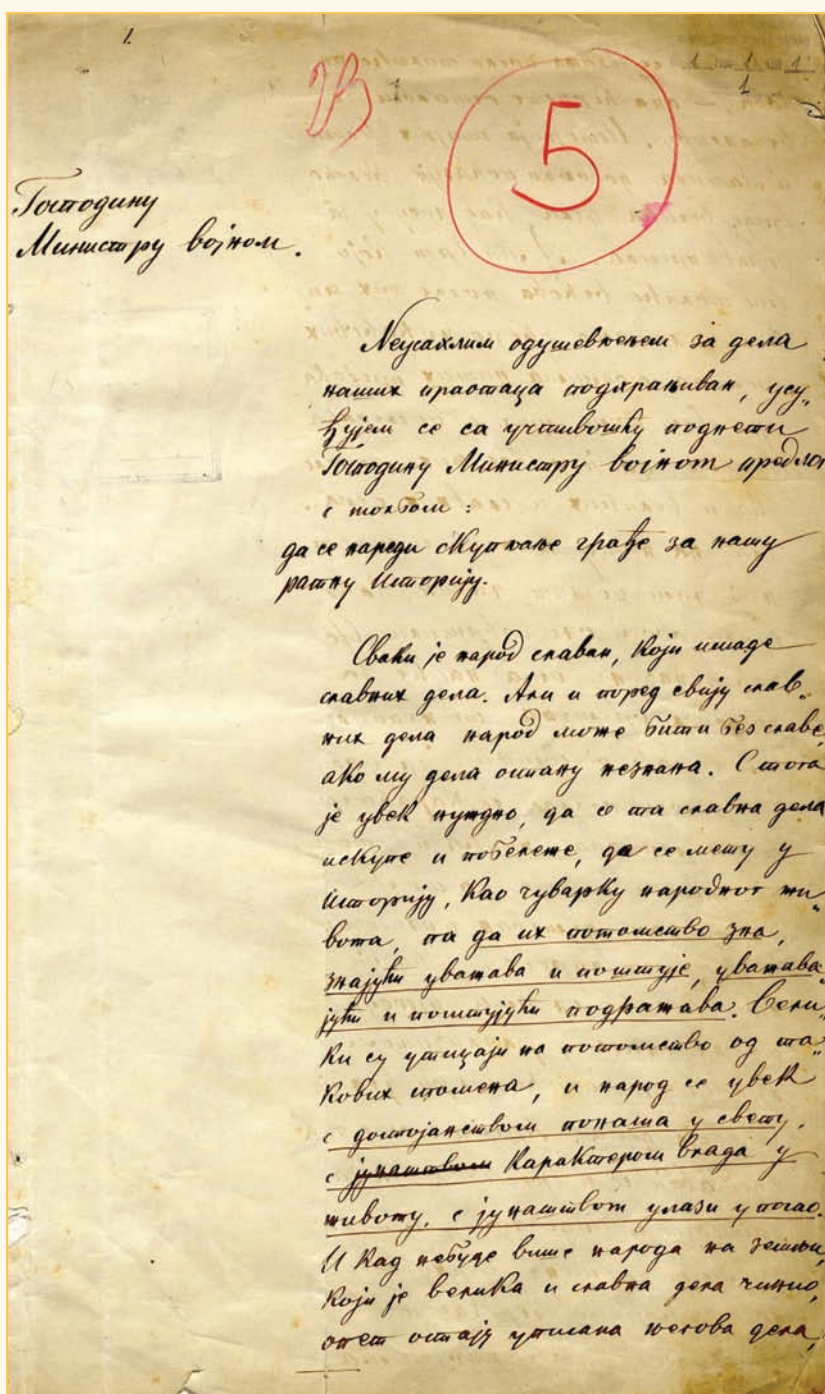 1.
5
Господину
Министру војном.
Неусахлим одушевљењем за дела
наших праотаца подхрањиван, усу„
ђујем се са учтивошћу поднети
Господину Министру војном предлог
с молбом :
да се нареди скупљање грађе за нашу
ратну историју.
Сваки је народ славан, који имаде
славних дела. Али и поред свију слав„
них дела народ може бити без славе,
ако му дела остану незнана. С тога
је увек нуждно, да се та славна дела
искупе и побележе, да се мету у
историју, као чуварку народног жи„
вота, па да их потомство зна,
знајући уважава и поштује, уважава„
јући и поштујући подражава. Вели„
ки су утицаји на потомство од та„
кових спомена, и народ се увек
с достојанством понаша у свету,
с јунаштвом карактером влада у
животу, с јунаштвом улази у посао.
И кад небуде више народа на земљи,
који је велика и славна дела чинио,
опет остају уписана његова дела,